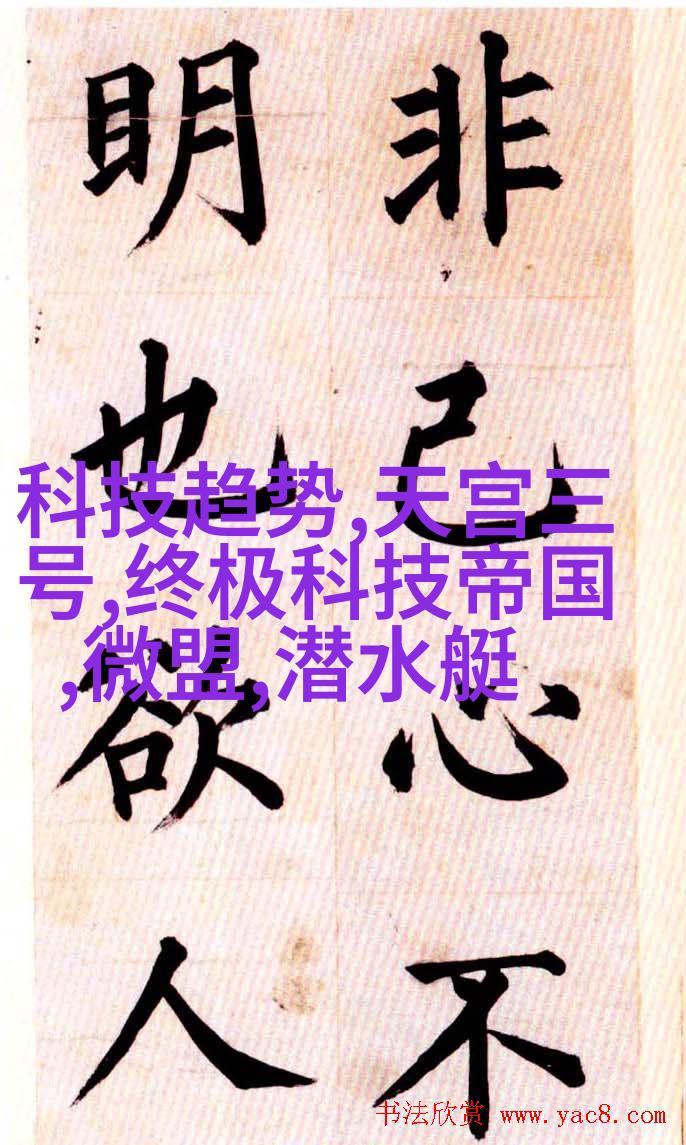 非己心不
明也欲人
科技趋势,天宫三
号,终极科技帝国
,微盟,潜水艇
书法欣赏 www.yac8.com